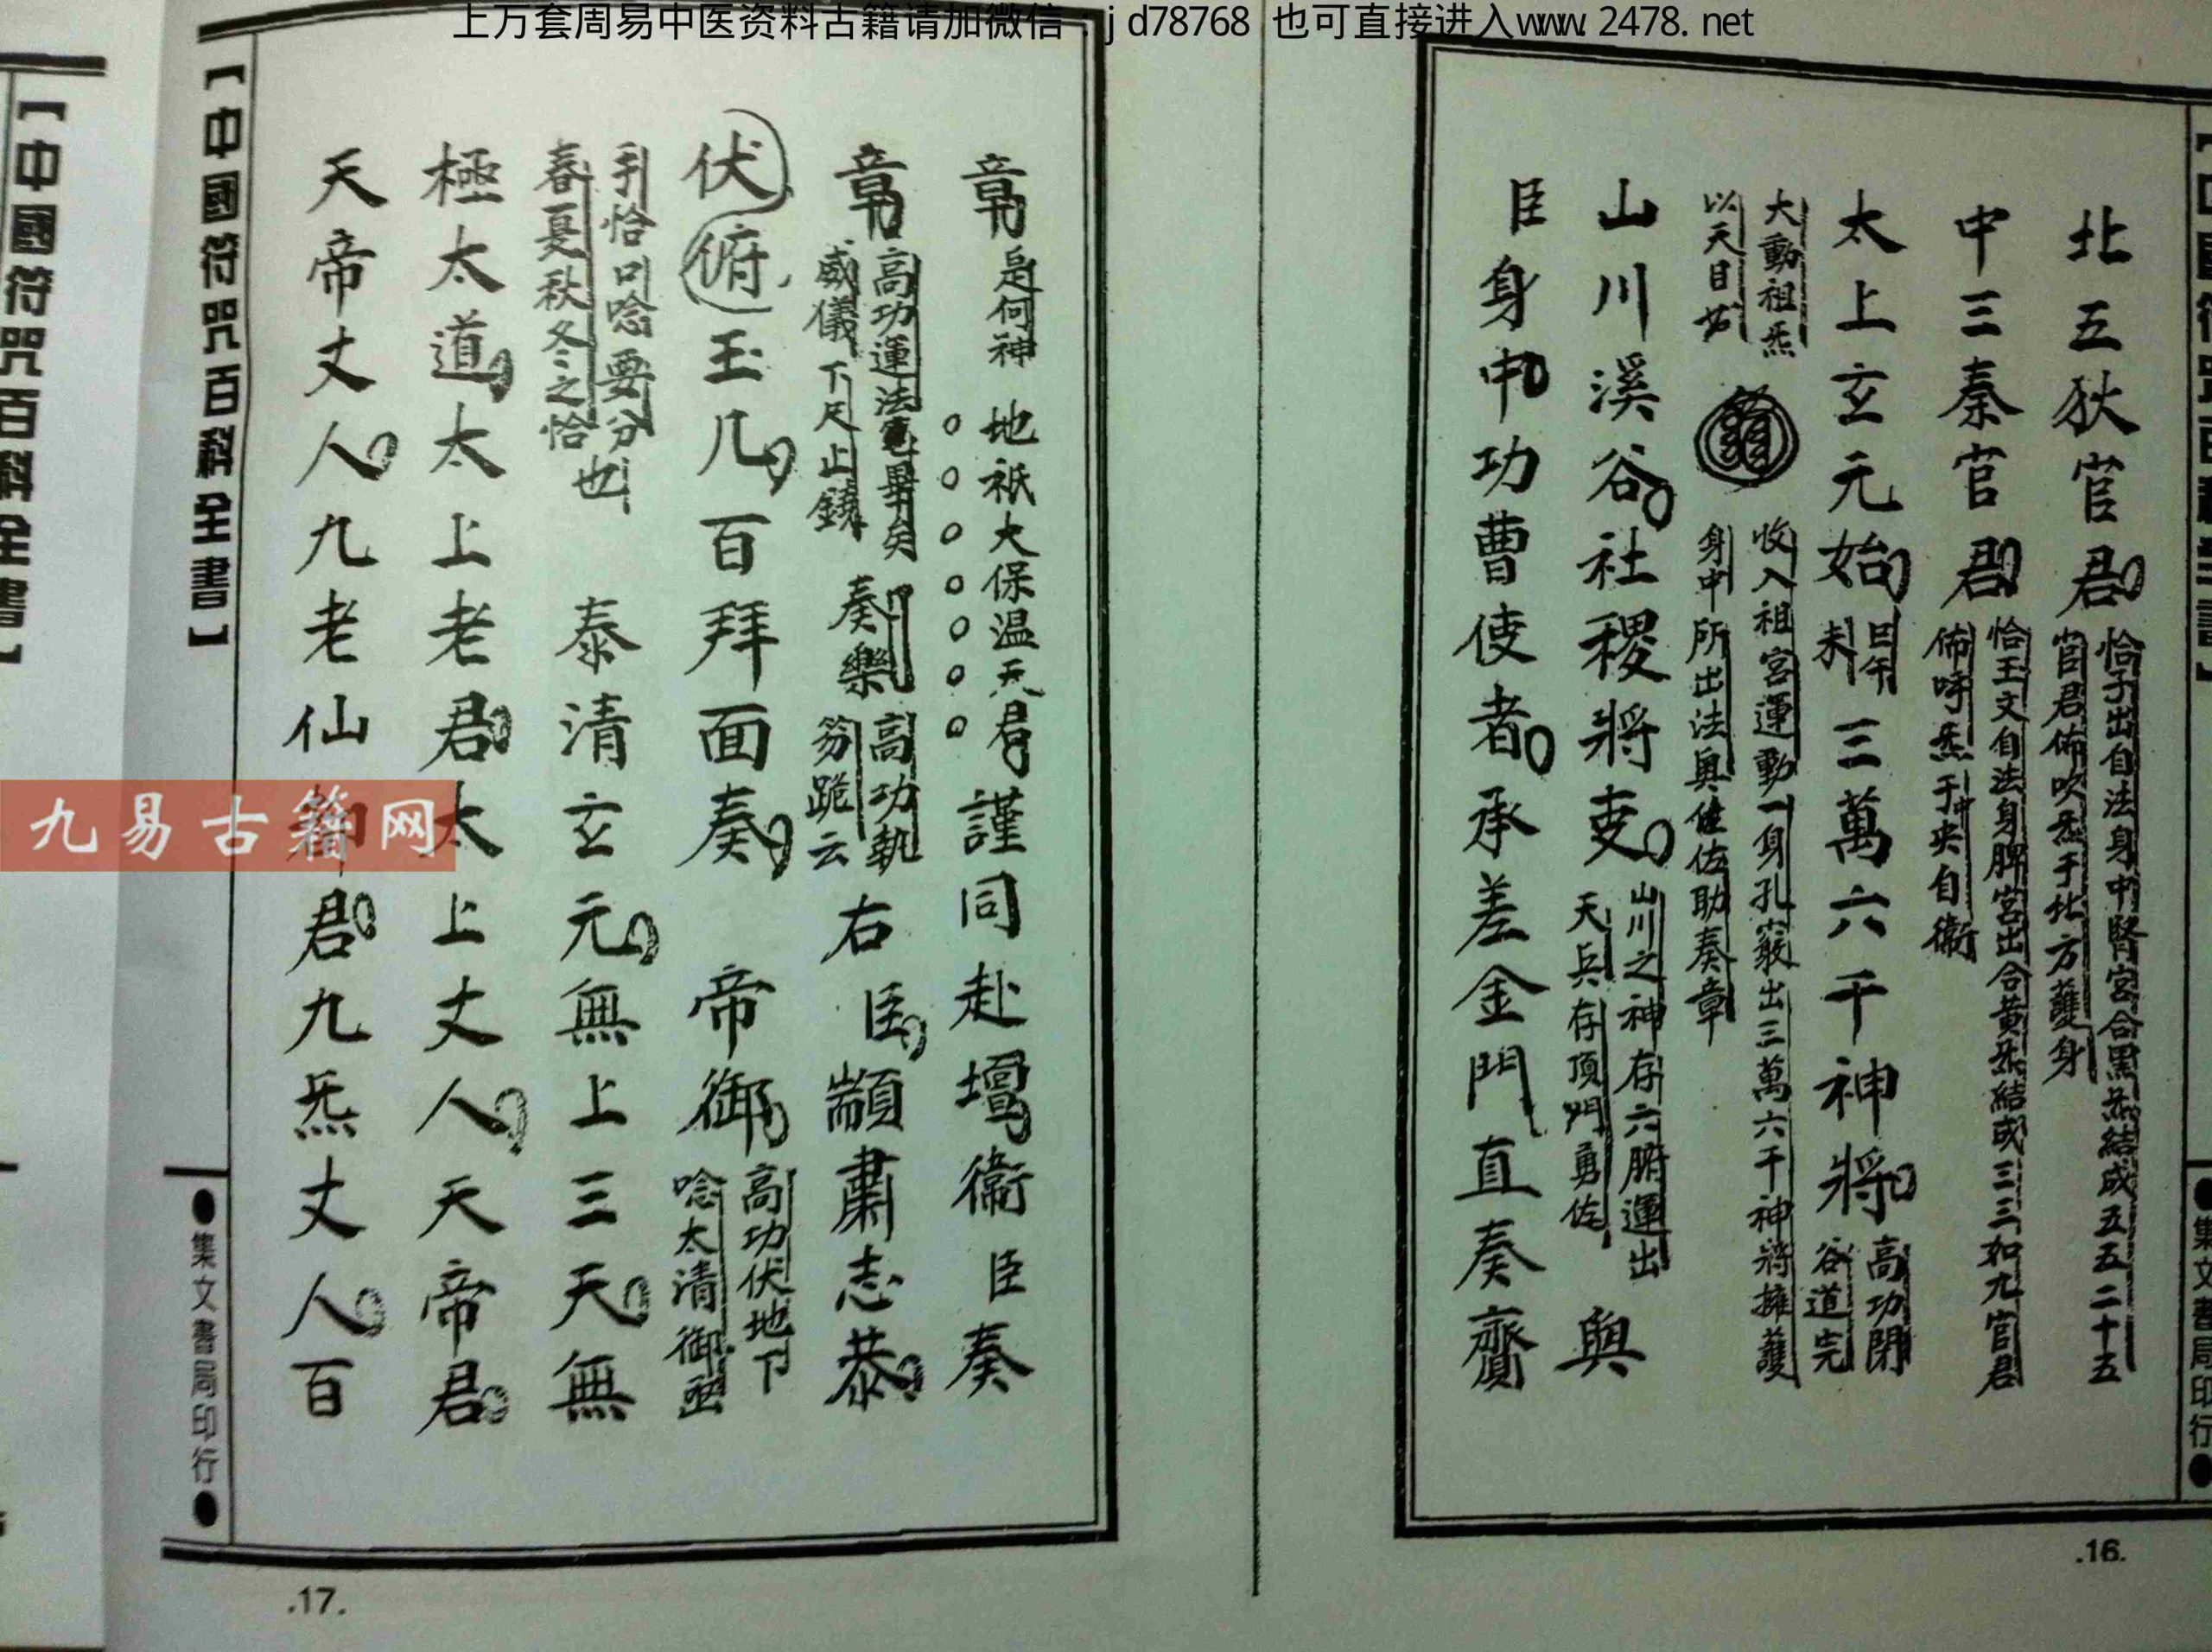 上万套周易中医资料古籍请加微信：jd78768 也可直接进入www.2478.net
北五狄官君 恰子出自法身中腎宮合黑炁結成五五二十五官君佈吹炁于北方護身
中三秦官君 恰玉文自法身脾宮出合黃炁結成三三如九官君佈呼炁于中央自衛
太上玄元始 巳午未 三萬六千神將 高功閉谷道完
大動祖炁以天目 收入祖宮運動一身孔竅出三萬六千神將擁護身中所出法與佐助奏章
山川溪谷社稷將吏 山川之神存六腑運出天兵存頂門勇佐 與
臣身中功曹使者承差金門直奏齎
.16.
章 是何神 地祇太保温元君 謹同赴壇衞臣奏
章 高功運法畢矣威儀下尺止鐃 奏樂 高功執笏跪云 右臣顓肅志恭
伏俯玉几百拜面奏 帝御 高功伏地下唸太清御函
手恰口唸要分春夏秋冬之恰也 泰清玄元無上三天無
極太道太上老君太上丈人天帝君
天帝丈人九老仙都君九炁丈人百
【中國符咒百科全書】
●集文書局印行●
.17.
【中國符咒百科全書】
九易古籍网